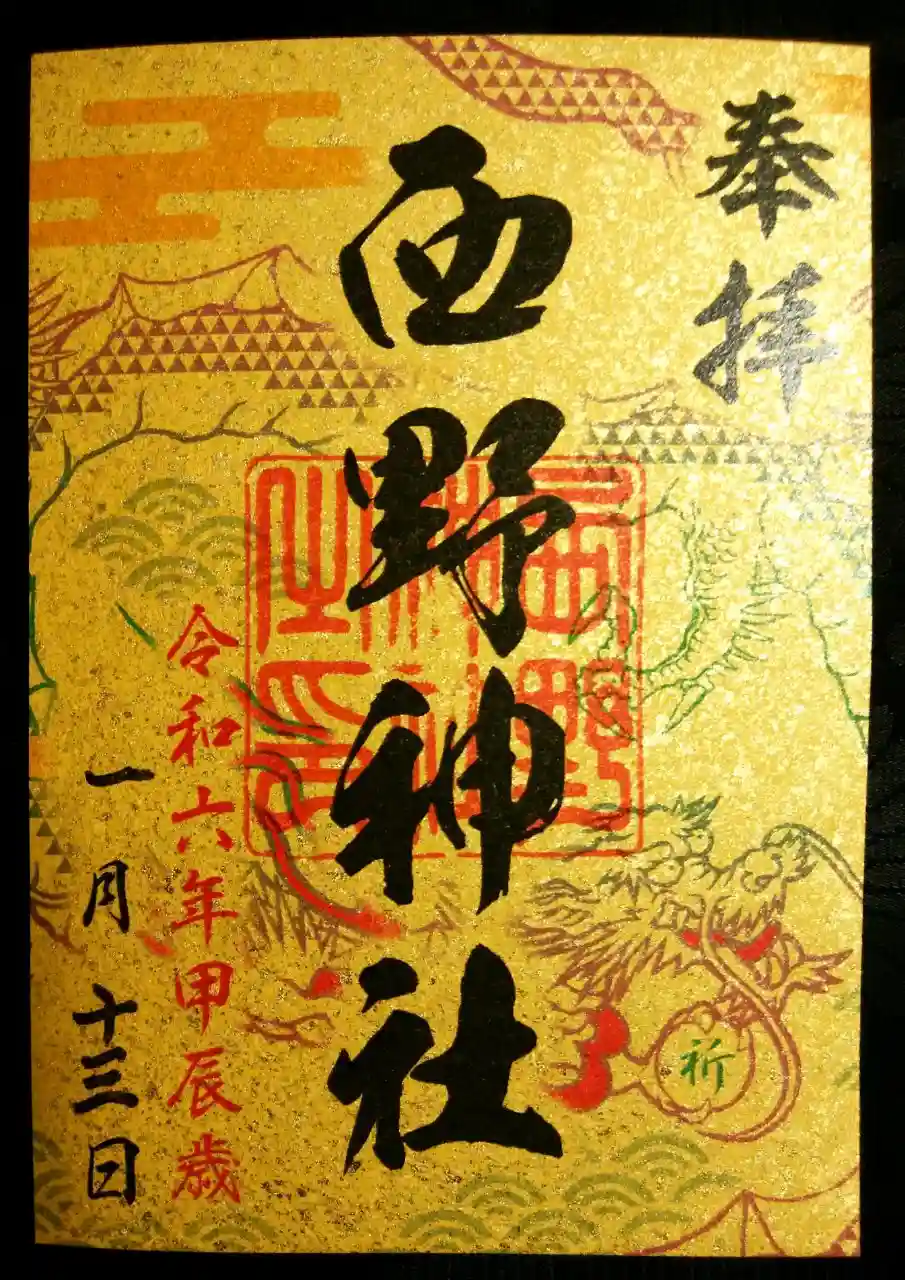 奉拝
西野神社
西野神社之印
令和六年甲辰歳
一月十三日
祈